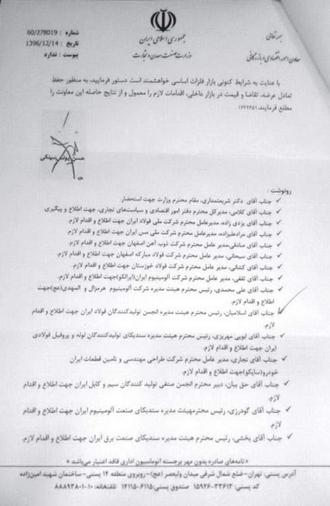 بسمه تعالی
جمهوری اسلامی ایران
وزارت صنعت، معدن و تجارت
معاون امور اقتصادی و بازرگانی
شماره : 60/278019
تاریخ : 1396/12/14
پیوست : ندارد
با عنایت به شرایط کنونی بازار فلزات اساسی خواهشمند است دستور فرمایید، به منظور حفظ
تعادل عرضه، تقاضا و قیمت در بازار داخلی، اقدامات لازم را معمول و از نتایج حاصله این معاونت را
مطلع فرمایند.
رونوشت :
جناب آقای دکتر شریعتمداری، مقام محترم وزارت جهت استحضار.
جناب آقای کلامی، مدیرکل محترم دفتر امور اقتصادی و سیاست‌های تجاری، جهت اطلاع و پیگیری.
جناب آقای یزدی زاده، مدیرعامل محترم شرکت ملی فولاد ایران جهت اطلاع و اقدام لازم.
جناب آقای مرادعلیزاده، مدیرعامل محترم شرکت ملی مس ایران جهت اطلاع و اقدام لازم.
جناب آقای صادقی، مدیر عامل محترم شرکت ذوب آهن اصفهان جهت اطلاع و اقدام لازم.
جناب آقای سبحانی، مدیر عامل محترم شرکت فولاد مبارکه اصفهان جهت اطلاع و اقدام لازم.
جناب آقای کشانی، مدیر عامل محترم شرکت فولاد خوزستان جهت اطلاع و اقدام لازم.
جناب آقای ثقفی، مدیر عامل محترم شرکت آلومینیوم ایران(ایرالکو)جهت اطلاع و اقدام لازم.
جناب آقای علی محمدی، رئیس محترم هیئت مدیره شرکت آلومینیوم هرمزال و المهدی(عج)جهت
اطلاع و اقدام لازم.
جناب آقای اسلامیان، رئیس محترم هیئت مدیره انجمن تولیدکنندگان فولاد ایران جهت اطلاع و اقدام
لازم.
جناب آقای ایوبی مهریزی، رئیس محترم هیئت مدیره سندیکای تولیدکنندگان لوله و پروفیل فولادی
ایران جهت اطلاع و اقدام لازم.
جناب آقای نجاری، مدیر عامل محترم شرکت طراحی مهندسی و تامین قطعات ایران
خودرو(ساپکو)جهت اطلاع و اقدام لازم.
جناب آقای حق بیان، دبیر محترم انجمن صنفی تولید کنندگان سیم و کابل ایران جهت اطلاع و اقدام
لازم.
جناب آقای گودرزی، رئیس محترم هیئت مدیره سندیکای صنعت آلومینیوم ایران جهت اطلاع و اقدام
لازم.
جناب آقای بخشی، رئیس محترم هیئت مدیره سندیکای صنعت برق ایران جهت اطلاع و اقدام لازم.
«نامه‌های صادره بدون مهر برجسته اتوماسیون اداری فاقد اعتبار می‌باشد»
آدرس پستی: تهران-ضلع شمالی میدان ولیعصر (عج)-روبروی منطقه ۱۴ پستی-ساختمان شهید امین‌زاده
کد پستی: ۱۵۹۳۶-۳۳۶۱۴ صندوق پستی: ۶۱۱۵-۱۴۱۱۵ تلفنخانه: ۱۰-۸۸۸۹۳۸۰۱